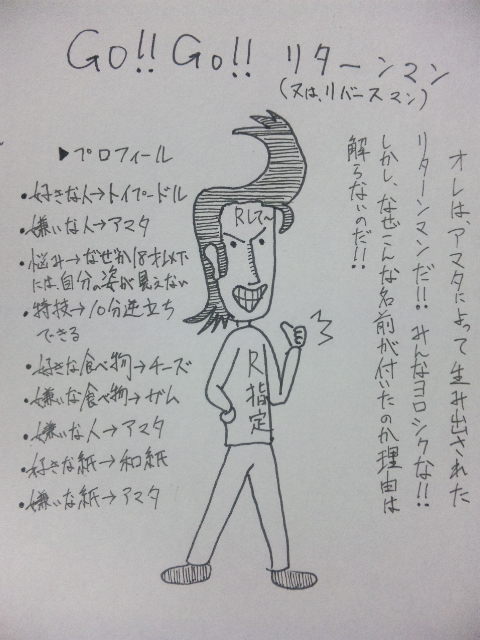 GO!! GO!! リターンマン
(又は、リバースマン)
オレは、アマタによって生み出された
リターンマンだ!! みんなヨロシクな!!
しかし、なぜこんな名前が付いたのか理由は
解らないのだ!!
▶プロフィール
・好きな人→トイプードル
・嫌いな人→アマタ
・悩み→なぜか18才以下
には自分の姿が見えない
・特技→10分逆立ち
できる
・好きな食べ物→チーズ
・嫌いな食べ物→ガム
・嫌いな人→アマタ
・好きな紙→和紙
・嫌いな紙→アマタ
Rして〜
R指定